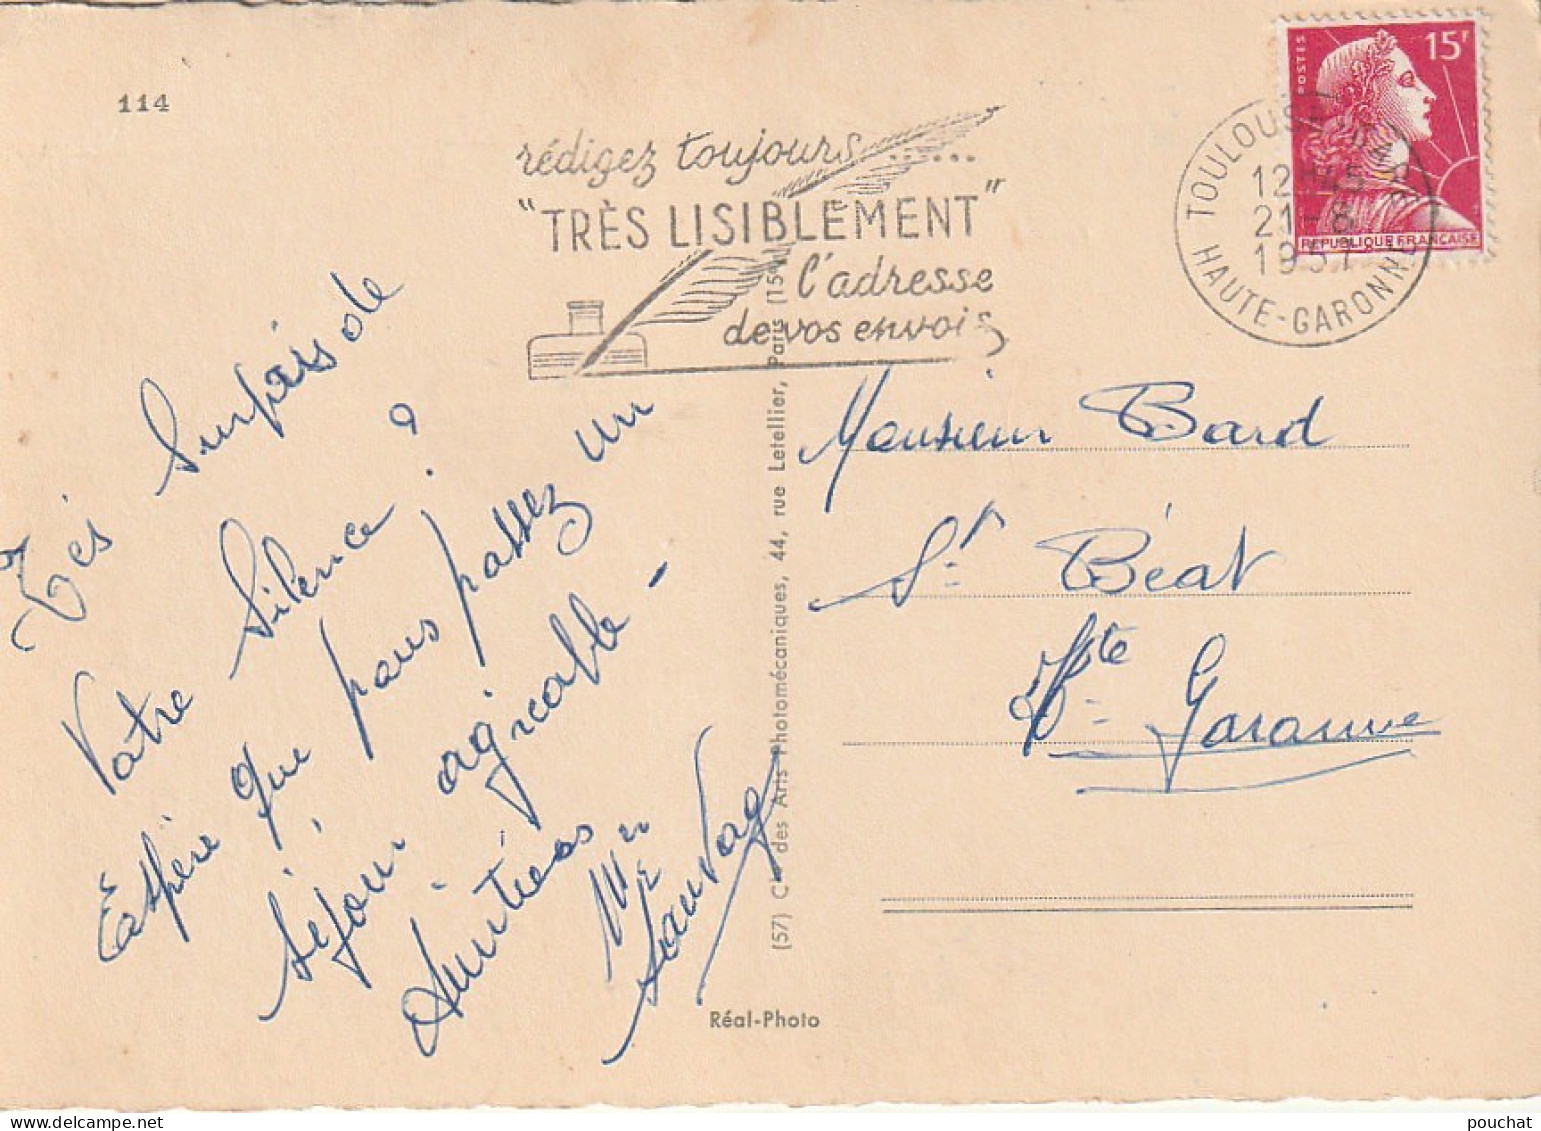 114
rédigez toujours......
"TRÈS LISIBLEMENT"
l'adresse
de vos envois
POSTES
15F
REPUBLIQUE FRANÇAISE
TOULOUSE
12H45
21-8
1957
HAUTE-GARONNE
Très Surpris de
Votre Silence ?
Espère que vous passez un
séjour agréable -
Amitiés
Monsieur Bard
St Béat
Hte Garonne
(57) Cie des Arts Photomécaniques, 44, rue Letellier, Paris (15e)
Réal-Photo
pouchat